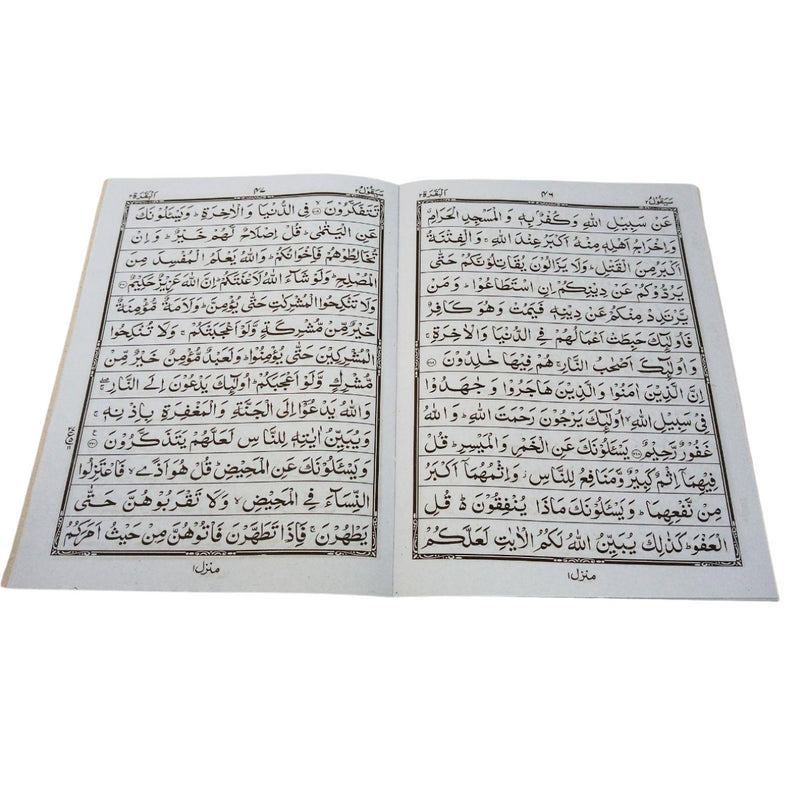 البقرة ٢
٤٦
سيقول ٢
عَنْ سَبِيْلِ اللّٰهِ وَكُفْرٌۢ بِهٖ وَ الْمَسْجِدِ الْحَرَامِ
وَاِخْرَاجُ اَهْلِهٖ مِنْهُ اَكْبَرُ عِنْدَ اللّٰهِ ۚ وَ الْفِتْنَةُ
اَكْبَرُ مِنَ الْقَتْلِ ؕ وَلَا يَزَالُوْنَ يُقَاتِلُوْنَكُمْ حَتّٰى
يَرُدُّوْكُمْ عَنْ دِيْنِكُمْ اِنِ اسْتَطَاعُوْا ؕ وَ مَنْ
يَّرْتَدِدْ مِنْكُمْ عَنْ دِيْنِهٖ فَيَمُتْ وَهُوَ كَافِرٌ
فَاُولٰٓئِكَ حَبِطَتْ اَعْمَالُهُمْ فِي الدُّنْيَا وَالْاٰخِرَةِ ۚ
وَ اُولٰٓئِكَ اَصْحٰبُ النَّارِ ۚ هُمْ فِيْهَا خٰلِدُوْنَ ﴿۲۱۷﴾
اِنَّ الَّذِيْنَ اٰمَنُوْا وَالَّذِيْنَ هَاجَرُوْا وَ جٰهَدُوْا
فِيْ سَبِيْلِ اللّٰهِ ۙ اُولٰٓئِكَ يَرْجُوْنَ رَحْمَتَ اللّٰهِ ؕ وَ اللّٰهُ
غَفُوْرٌ رَّحِيْمٌ ﴿۲۱۸﴾ يَسْـَٔلُوْنَكَ عَنِ الْخَمْرِ وَ الْمَيْسِرِ ؕ قُلْ
فِيْهِمَاۤ اِثْمٌ كَبِيْرٌ وَّمَنَافِعُ لِلنَّاسِ ۫ وَ اِثْمُهُمَاۤ اَكْبَرُ
مِنْ نَّفْعِهِمَا ؕ وَ يَسْـَٔلُوْنَكَ مَاذَا يُنْفِقُوْنَ ؕ قُلِ
الْعَفْوَ ؕ كَذٰلِكَ يُبَيِّنُ اللّٰهُ لَكُمُ الْاٰيٰتِ لَعَلَّكُمْ
منزل ١
البقرة ٢
٤٧
سيقول ٢
تَتَفَكَّرُوْنَ ﴿۲۱۹﴾ فِي الدُّنْيَا وَ الْاٰخِرَةِ ؕ وَ يَسْـَٔلُوْنَكَ
عَنِ الْيَتٰمٰى ؕ قُلْ اِصْلَاحٌ لَّهُمْ خَيْرٌ ؕ وَ اِنْ
تُخَالِطُوْهُمْ فَاِخْوَانُكُمْ ؕ وَاللّٰهُ يَعْلَمُ الْمُفْسِدَ مِنَ
الْمُصْلِحِ ؕ وَلَوْ شَآءَ اللّٰهُ لَاَعْنَتَكُمْ ؕ اِنَّ اللّٰهَ عَزِيْزٌ حَكِيْمٌ ﴿۲۲۰﴾
وَلَا تَنْكِحُوا الْمُشْرِكٰتِ حَتّٰى يُؤْمِنَّ ؕ وَلَاَمَةٌ مُّؤْمِنَةٌ
خَيْرٌ مِّنْ مُّشْرِكَةٍ وَّلَوْ اَعْجَبَتْكُمْ ۚ وَلَا تُنْكِحُوا
الْمُشْرِكِيْنَ حَتّٰى يُؤْمِنُوْا ؕ وَلَعَبْدٌ مُّؤْمِنٌ خَيْرٌ مِّنْ
مُّشْرِكٍ وَّلَوْ اَعْجَبَكُمْ ؕ اُولٰٓئِكَ يَدْعُوْنَ اِلَى النَّارِ ۖ
وَاللّٰهُ يَدْعُوْۤا اِلَى الْجَنَّةِ وَ الْمَغْفِرَةِ بِاِذْنِهٖ ۚ
وَ يُبَيِّنُ اٰيٰتِهٖ لِلنَّاسِ لَعَلَّهُمْ يَتَذَكَّرُوْنَ ﴿۲۲۱﴾
وَ يَسْـَٔلُوْنَكَ عَنِ الْمَحِيْضِ ؕ قُلْ هُوَ اَذًى ۙ فَاعْتَزِلُوا
النِّسَآءَ فِي الْمَحِيْضِ ۙ وَلَا تَقْرَبُوْهُنَّ حَتّٰى
يَطْهُرْنَ ۚ فَاِذَا تَطَهَّرْنَ فَاْتُوْهُنَّ مِنْ حَيْثُ اَمَرَكُمُ
منزل ١